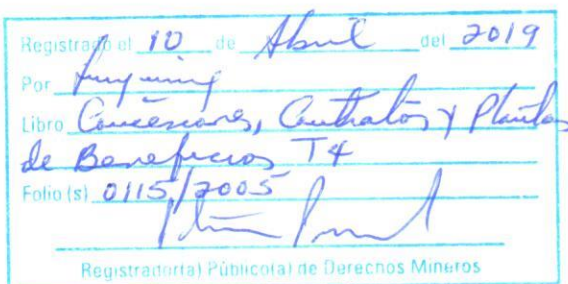 Registrado el 10 de Abril del 2019
Por
Libro Concesiones, Contratos y Plantas
de Beneficios T4
Folio (s) 0115/2005
Registrador(a) Público(a) de Derechos Mineros